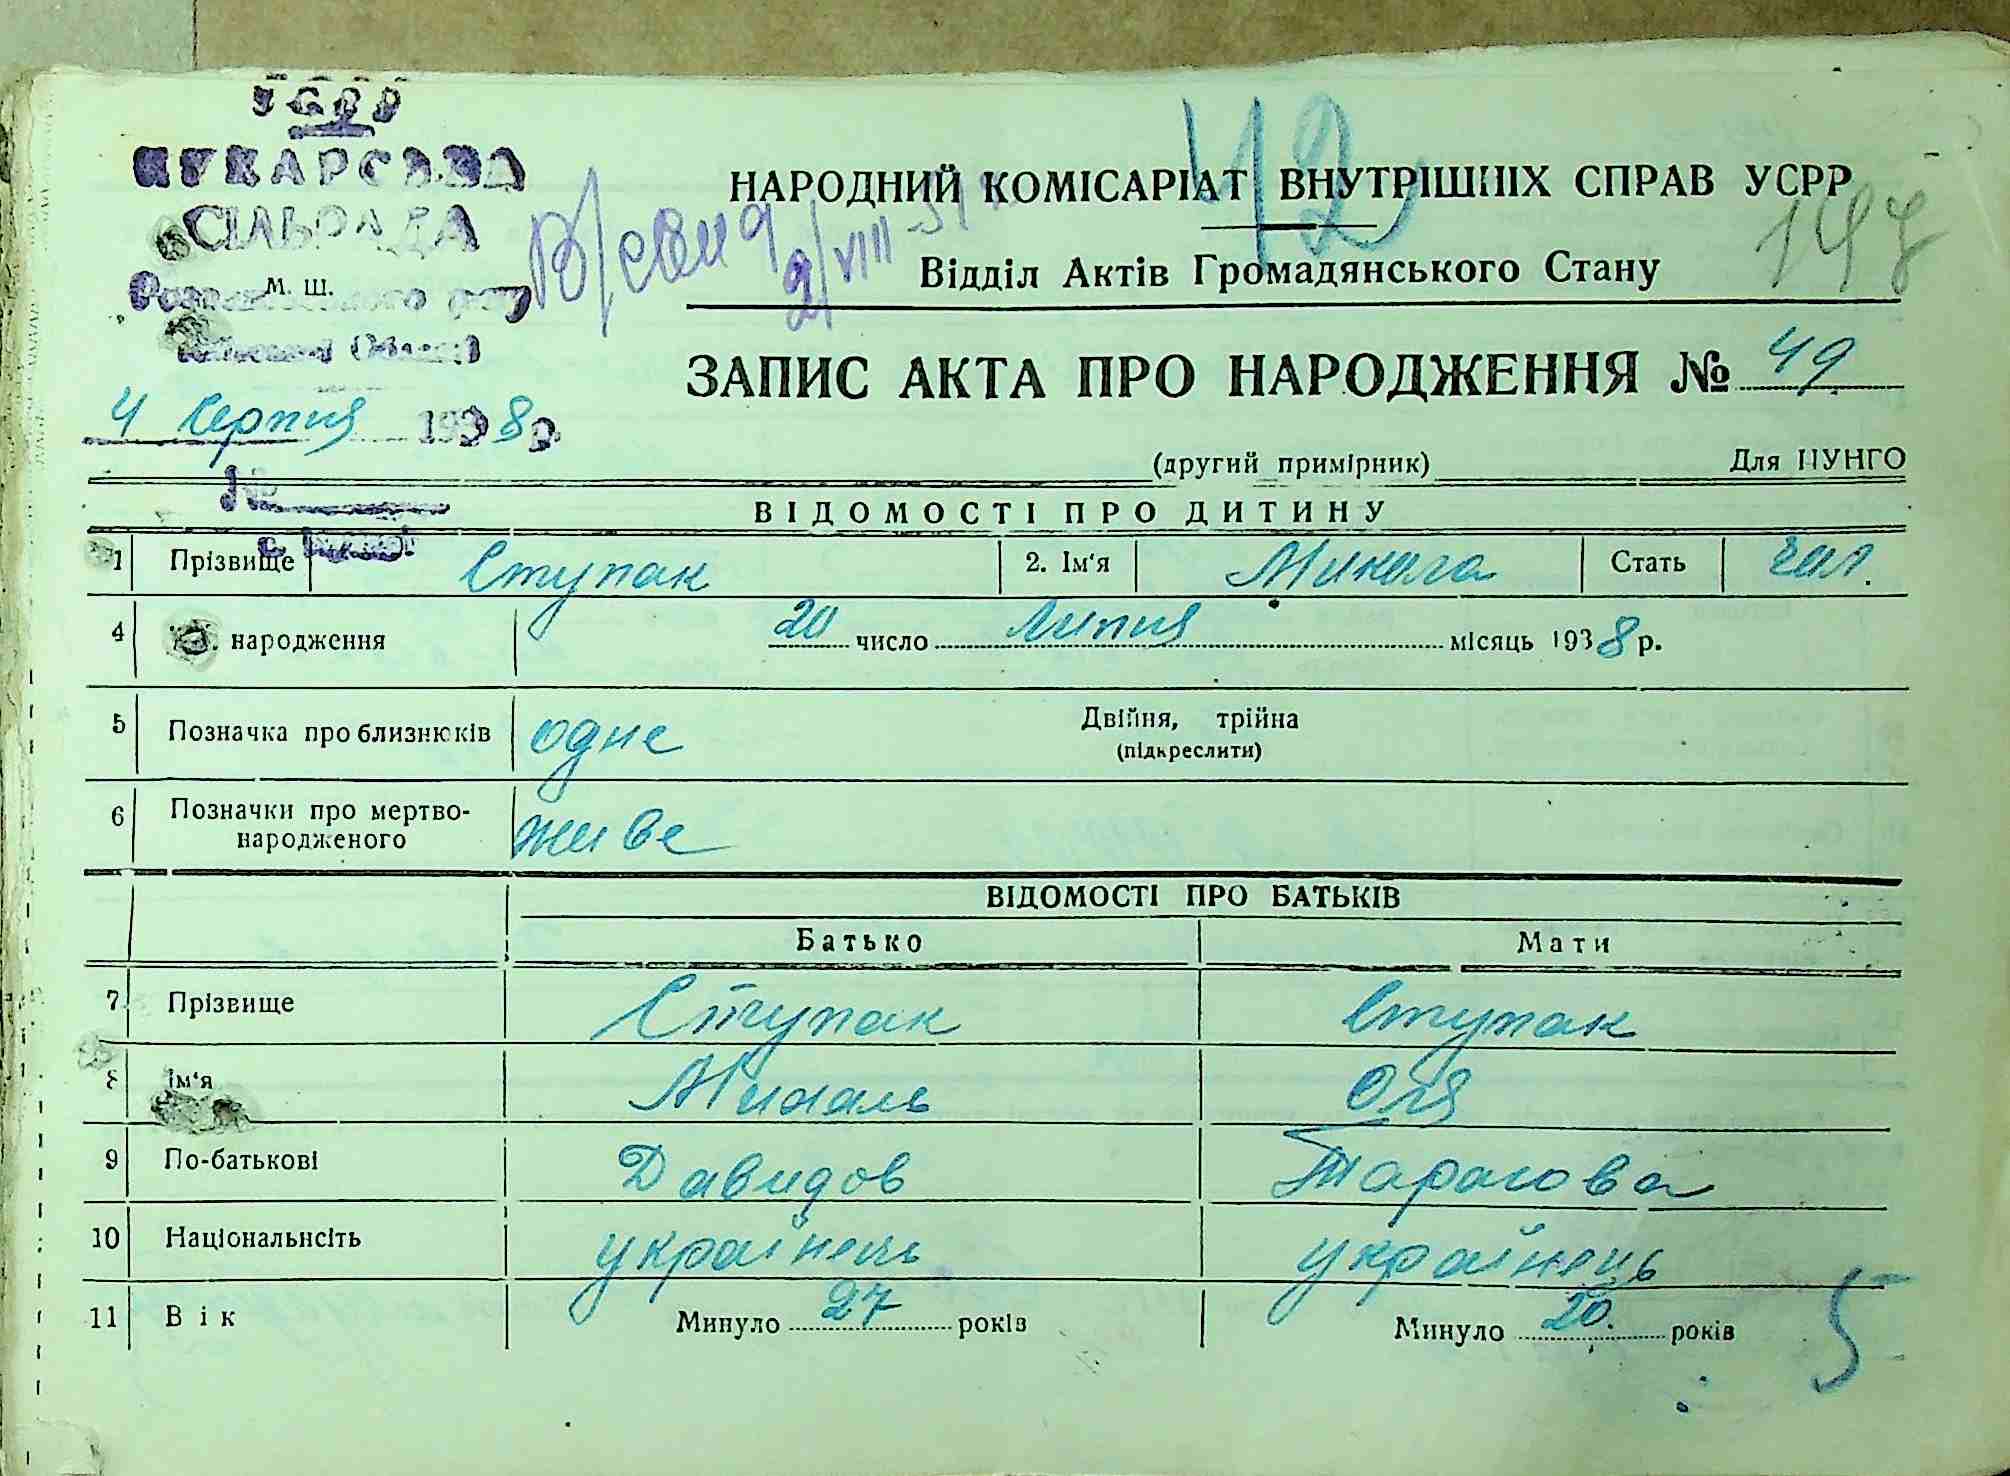 УСРР
КУКАРСЬКА
СІЛЬРАДА
М. Ш.
району
4 серпня 1938 р.
№
42
147
НАРОДНИЙ КОМІСАРІАТ ВНУТРІШНІХ СПРАВ УСРР
9/VIII
Відділ Актів Громадянського Стану
ЗАПИС АКТА ПРО НАРОДЖЕННЯ № 49
(другий примірник) Для ЦУНГО
ВІДОМОСТІ ПРО ДИТИНУ
1 Прізвище Ступак 2. Ім'я Микола Стать чол.
4 народження 20 число Липня місяць 1938 р.
5 Позначка про близнюків одне Двійня, трійна
(підкреслити)
6 Позначки про мертво-
народженого живе
ВІДОМОСТІ ПРО БАТЬКІВ
Батько Мати
7 Прізвище Ступак Ступак
8 Ім'я Михаль Оля
9 По-батькові Давидов Тарасова
10 Національнсіть українець українець
11 Вік Минуло 27 років Минуло 20. років
5